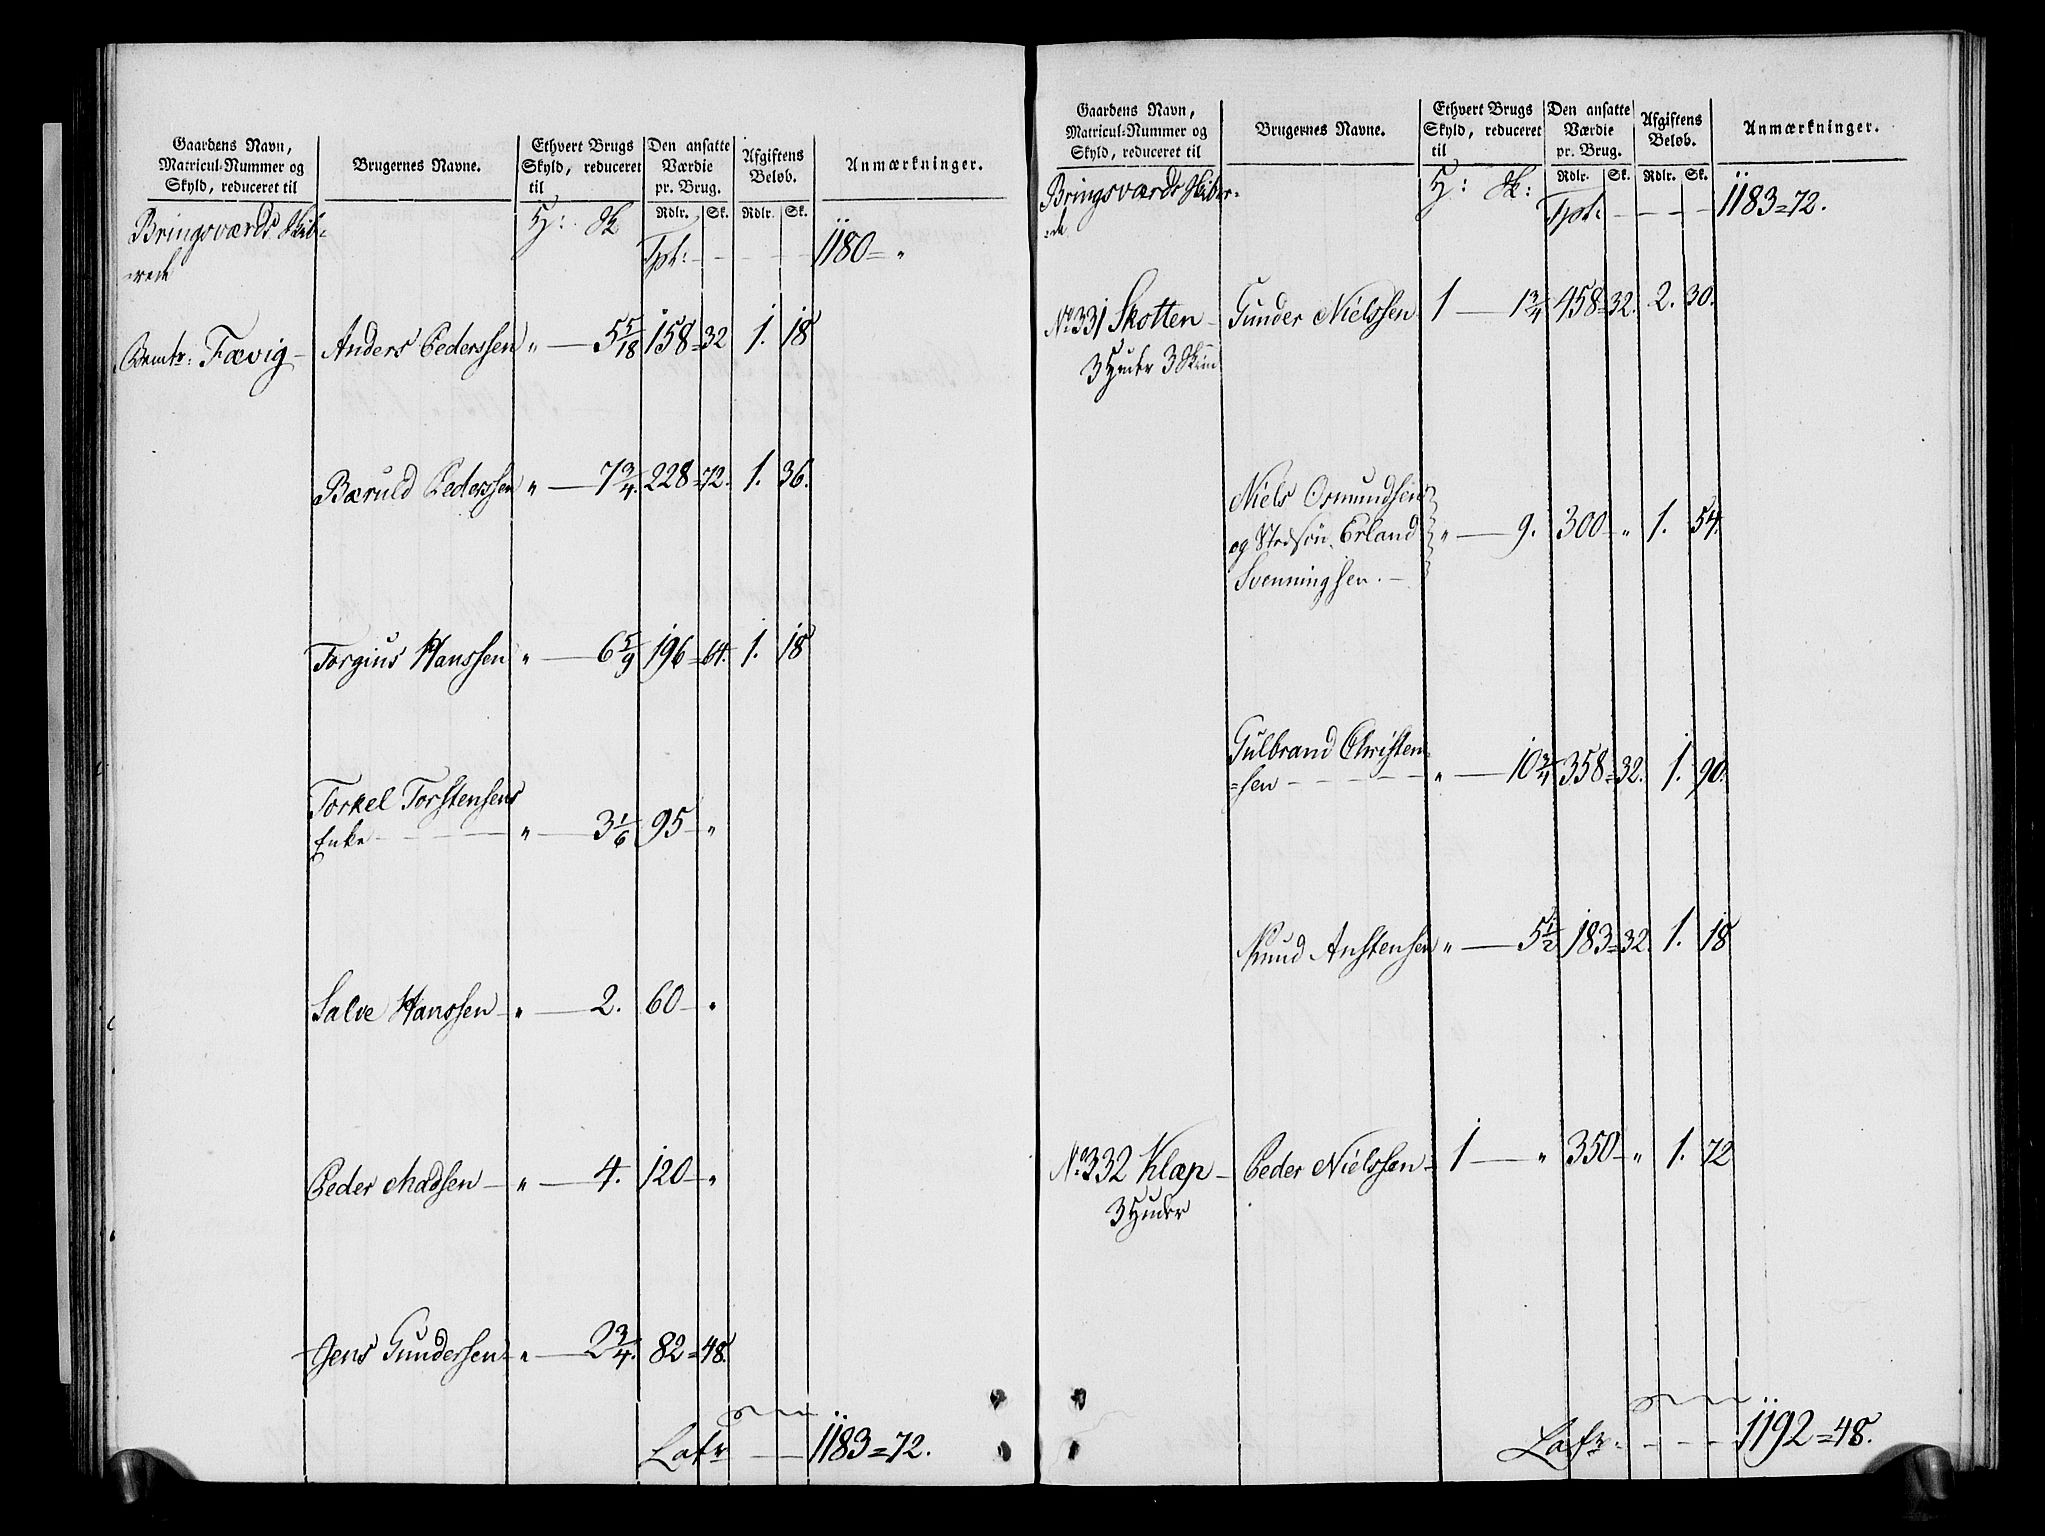 Gaardens Navn,
Matricul-Nummer og
Skyld, reduceret til
Brugernes Navne.
Ethvert Brugs
Skyld, reduceret
til
Den ansatte
Værdie
pr. Brug.
Afgiftens
Beløb.
Anmærkninger.
Rdlr. Sk. Rdlr. Sk.
Bringsværds Skib=
=rede
H: Sk
Tpt: - - - - 1180 = "
Anders Pedersen " — 5 5/18 158 = 32 1. 18
Fævig -
Bæruld Pedersen " — 7 3/4. 228 = 72. 1. 36.
Torgius Hanssen " — 6 5/9 196 = 64. 1. 18
Torkel Torstensens
Enke - - - - " — 3 1/6 95 - "
Salve Hanssen - " — 2. 60 - "
Peder Madsen - " — 4. 120 - "
Jens Gundersen - " — 2 3/4. 82 = 48.
Latr - - 1183 = 72.
Gaardens Navn,
Matricul-Nummer og
Skyld, reduceret til
Brugernes Navne.
Ethvert Brugs
Skyld, reduceret
til
Den ansatte
Værdie
pr. Brug.
Afgiftens
Beløb.
Anmærkninger.
Rdlr. Sk. Rdlr. Sk.
Bringsværds Skiber-
=de
H: Sk:
Tpt: - - - - 1183 = 72.
No 331 Skotten - Gunder Nielssen 1 — 1 3/4 458 = 32. 2. 30.
3 Huder 3 Skind
Niels Osmundsen
og Stedsøn Erland " — 9. 300 - " 1. 54.
Svenningsen. -
Gulbrand Christen=
=sen - - - - " — 10 3/4 358 = 32. 1. 90.
Knud Anstensen " — 5 1/2 183 = 32. 1. 18
No 332 Klæp - Peder Nielssen - 1 — " 350 - " 1. 72
3 Huder
Latr: - - - 1192 = 48.